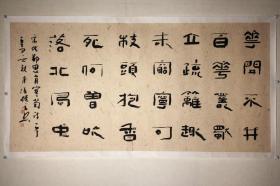 華開不并
百華叢獨
立疏籬趣
未窮寧可
枝頭抱香
死何曾吹
落北風中
宋代鄭思肖寒菊詩